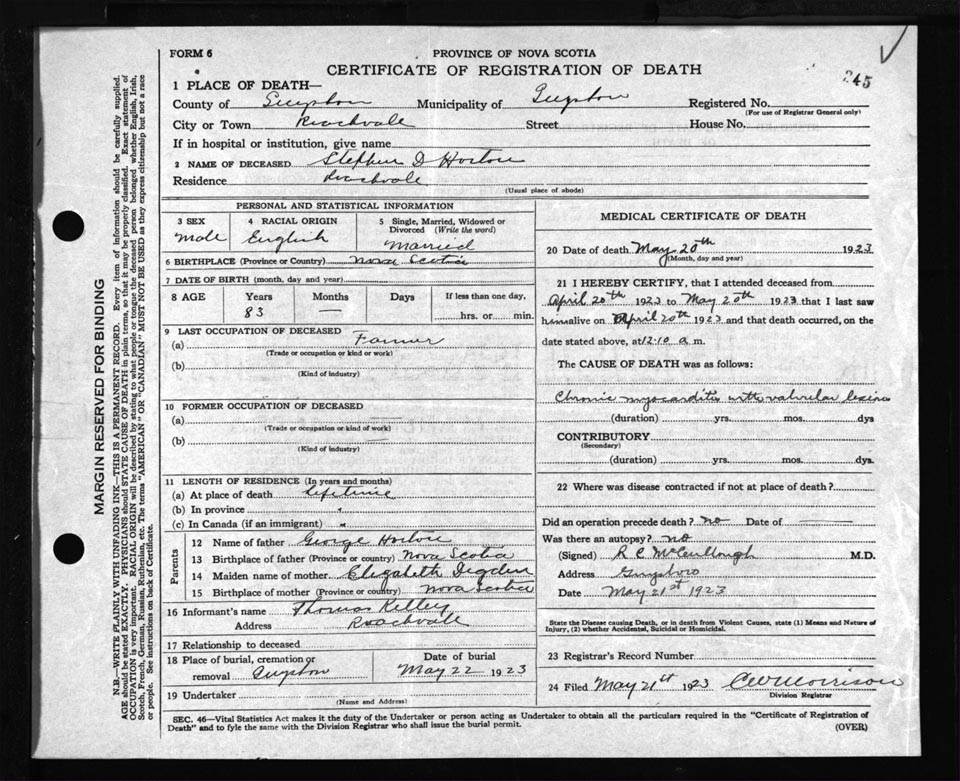 FORM 6
PROVINCE OF NOVA SCOTIA
CERTIFICATE OF REGISTRATION OF DEATH
245
1 PLACE OF DEATH—
County of Guysboro Municipality of Guysboro Registered No.
(For use of Registrar General only)
City or Town Roachvale Street House No.
If in hospital or institution, give name
2 NAME OF DECEASED Stephen D Horton
Residence Roachvale
(Usual place of abode)
PERSONAL AND STATISTICAL INFORMATION
3 SEX 4 RACIAL ORIGIN 5 Single, Married, Widowed or Divorced (Write the word)
Male English Married
6 BIRTHPLACE (Province or Country) Nova Scotia
7 DATE OF BIRTH (month, day and year)
8 AGE Years Months Days If less than one day,
83 — hrs. or min.
9 LAST OCCUPATION OF DECEASED
(a) Farmer
(Trade or occupation or kind or work)
(b)
(Kind of industry)
10 FORMER OCCUPATION OF DECEASED
(a)
(Trade or occupation or kind of work)
(b)
(Kind of industry)
11 LENGTH OF RESIDENCE (In years and months)
(a) At place of death lifetime
(b) In province "
(c) In Canada (if an immigrant) "
Parents
12 Name of father George Horton
13 Birthplace of father (Province or country) Nova Scotia
14 Maiden name of mother Elizabeth Digdon
15 Birthplace of mother (Province or country) Nova Scotia
16 Informant's name Thomas Kelley
Address Roachvale
17 Relationship to deceased
18 Place of burial, cremation or removal Guysboro
Date of burial
May 22 1923
19 Undertaker
(Name and Address)
MEDICAL CERTIFICATE OF DEATH
20 Date of death May 20th 1923
(Month, day and year)
21 I HEREBY CERTIFY, that I attended deceased from
April 20th 1923 to May 20th 1923 that I last saw
him alive on April 20th 1923 and that death occurred, on the
date stated above, at 12.10 a.m.
The CAUSE OF DEATH was as follows:
Chronic myocarditis with valvular lesions
(duration) yrs. mos. dys.
CONTRIBUTORY
(Secondary)
(duration) yrs. mos. dys.
22 Where was disease contracted if not at place of death?
Did an operation precede death? no Date of —
Was there an autopsy? no
(Signed) R C McCullough M.D.
Address Guysboro
Date May 21st 1923
State the Disease causing Death, or in death from Violent Causes, state (1) Means and Nature of
Injury, (2) whether Accidental, Suicidal or Homicidal.
23 Registrar's Record Number
24 Filed May 21st 1923 C W Morrison
Division Registrar
SEC. 46—Vital Statistics Act makes it the duty of the Undertaker or person acting as Undertaker to obtain all the particulars required in the "Certificate of Registration of
Death" and to fyle the same with the Division Registrar who shall issue the burial permit.
(OVER)
MARGIN RESERVED FOR BINDING
N.B.—WRITE PLAINLY WITH UNFADING INK—THIS IS A PERMANENT RECORD. Every item of information should be carefully supplied.
AGE should be stated EXACTLY. PHYSICIANS should STATE CAUSE OF DEATH in plain terms, so that it may be properly classified. Exact statement of
OCCUPATION is very important. RACIAL ORIGIN will be described by stating to what people or tongue the deceased person belonged whether English, Irish,
Scotch, French, German, Russian, Ruthenian, etc. The terms "AMERICAN" OR "CANADIAN" MUST NOT BE USED as they express citizenship but not a race
or people. See instructions on back of Certificate.